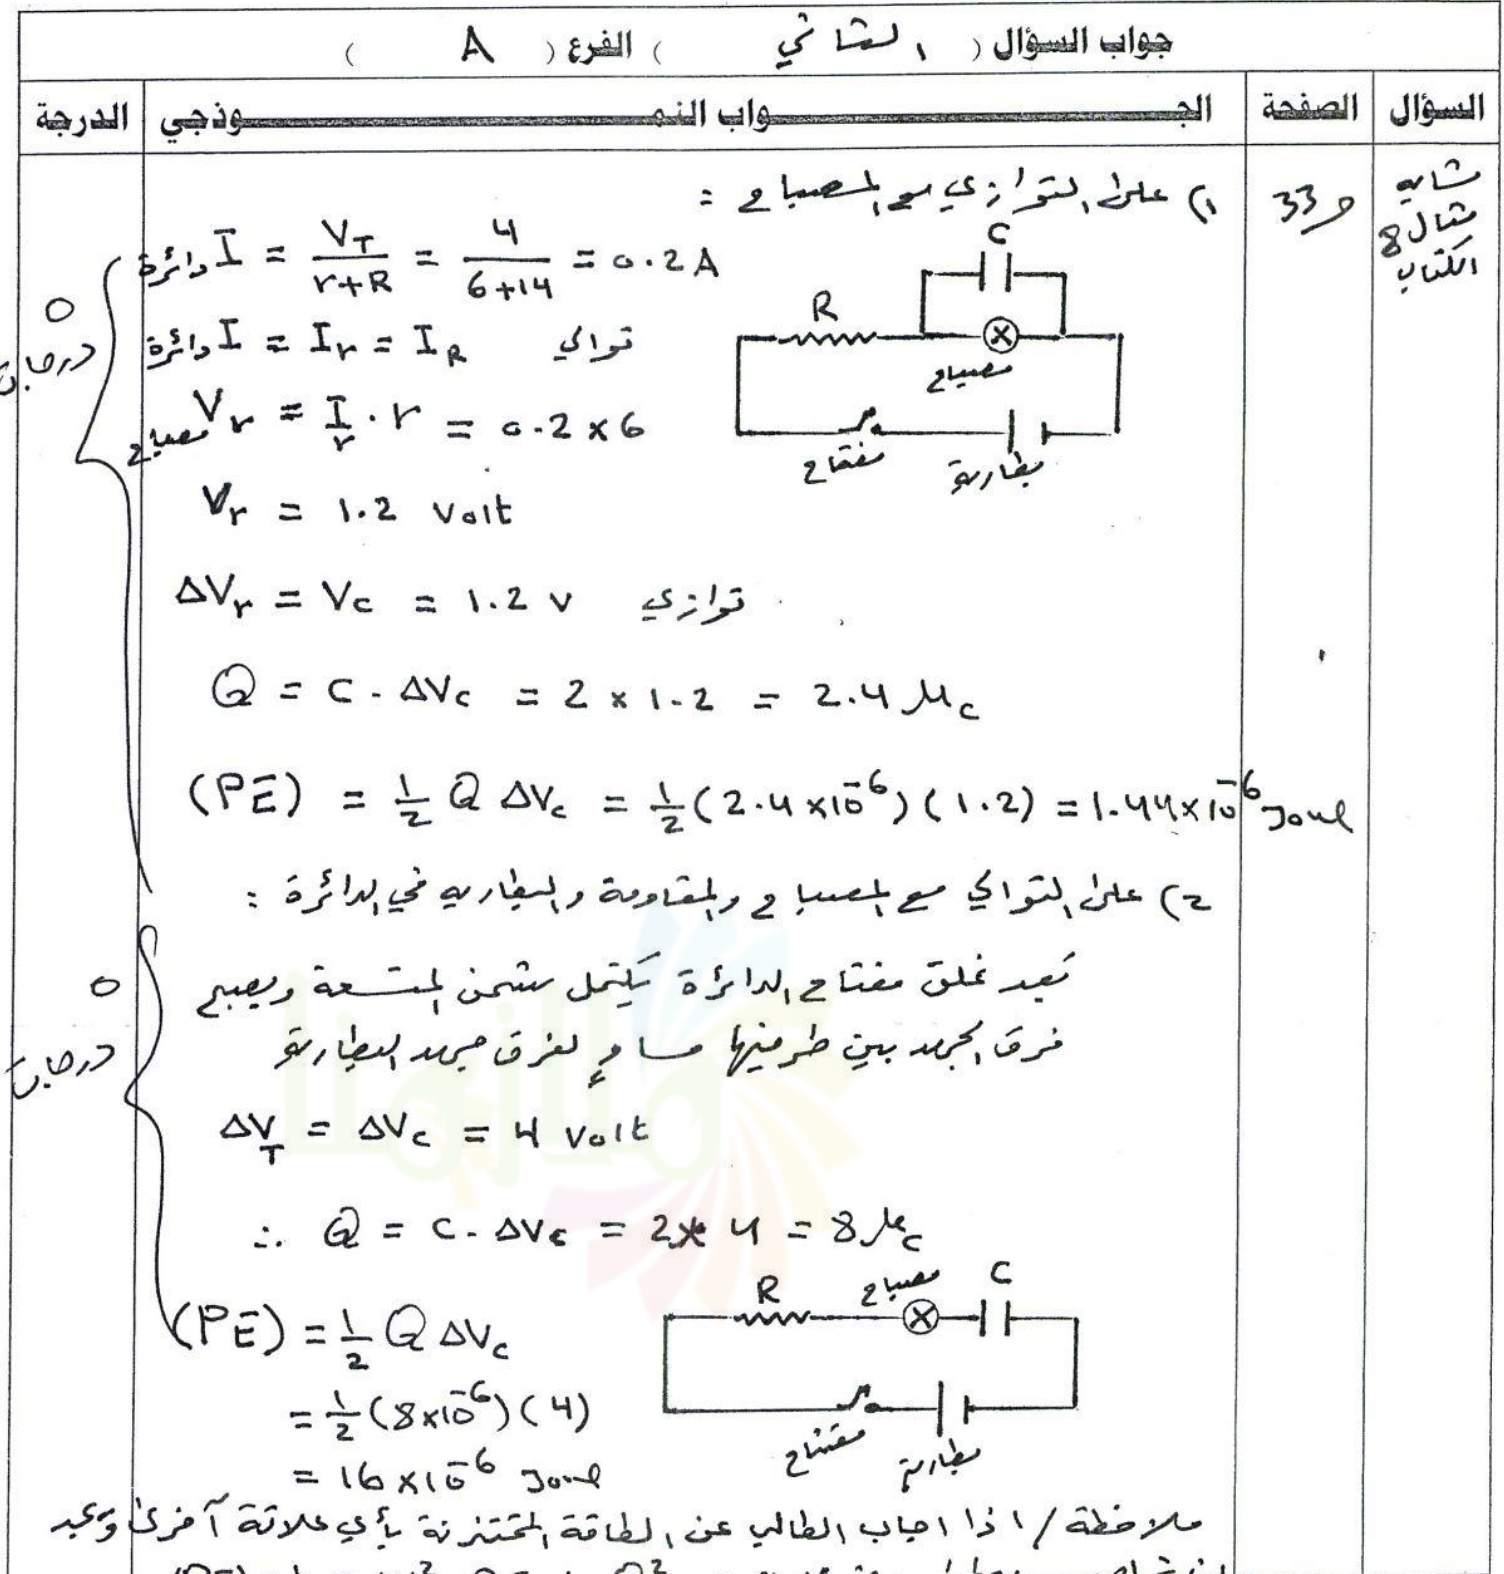 جواب السؤال ( الثاني ) الفرع ( A )
السؤال الصفحة الجـــواب النمـــوذجي الدرجة
مشابه مثال 8 الكتاب
ص 33
1) على التوازي مع المصباح :
I دائرة = V_T / (r+R) = 4 / (6+14) = 0.2 A
I دائرة = I_r = I_R توالي
V_r مصباح = I_r . r = 0.2 × 6
V_r = 1.2 Volt
ΔV_r = V_C = 1.2 V توازي
Q = C . ΔV_C = 2 × 1.2 = 2.4 μC
(PE) = 1/2 Q ΔV_C = 1/2 (2.4 × 10^-6) (1.2) = 1.44 × 10^-6 Joul
٥ درجات
C
R
مصباح
مفتاح
بطارية
2) على التوالي مع المصباح والمقاومة والبطارية في الدائرة :
بعد غلق مفتاح الدائرة يكتمل شحن المتسعة ويصبح
فرق الجهد بين طرفيها مساوٍ لفرق جهد البطارية
ΔV_T = ΔV_C = 4 Volt
∴ Q = C . ΔV_C = 2 × 4 = 8 μC
(PE) = 1/2 Q ΔV_C
= 1/2 (8 × 10^-6) (4)
= 16 × 10^-6 Joul
٥ درجات
R
مصباح
C
مفتاح
بطارية
ملازمنا
ملاحظة / اذا اجاب الطالب عن الطاقة المختزنة بأي علاقة آخرى